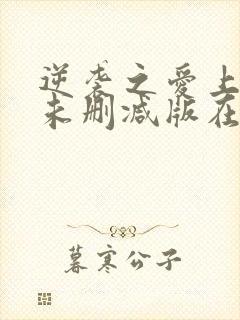 逆袭之爱上
未删减版在
暮寒公子